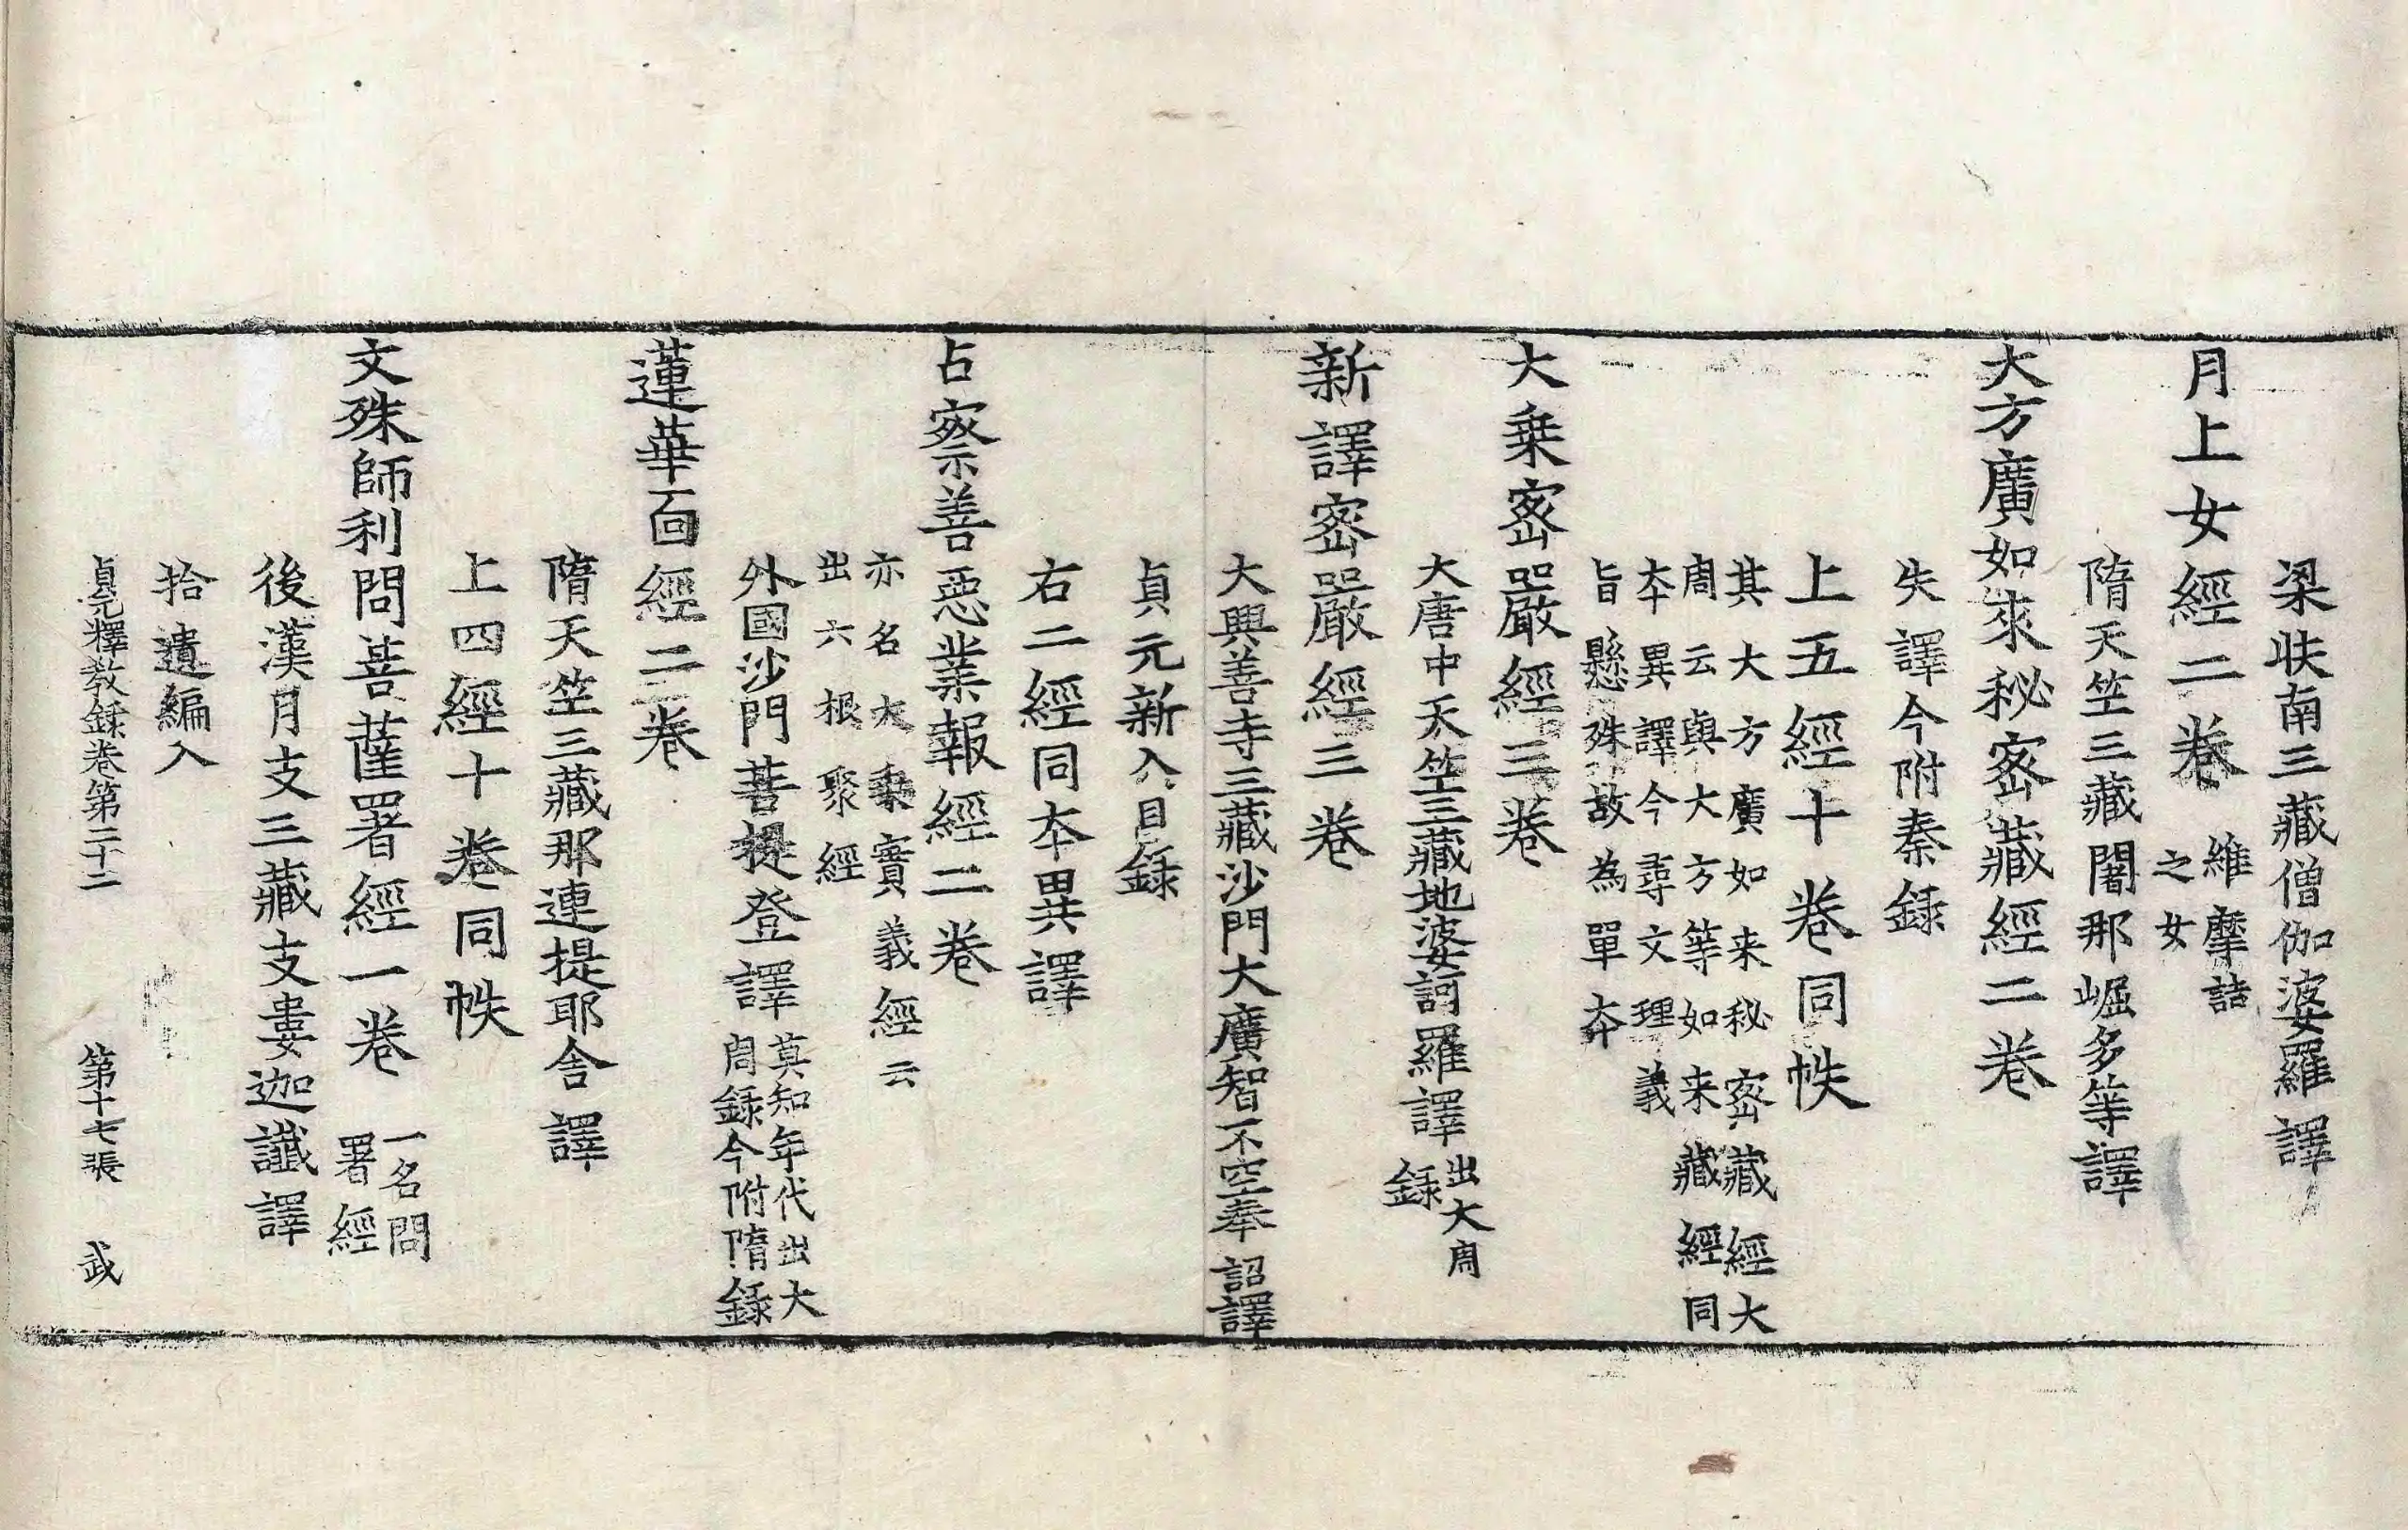 梁扶南三藏僧伽婆羅譯
月上女經二卷 維摩詰之女
隋天竺三藏闍那崛多等譯
大方廣如來秘密藏經二卷
失譯今附秦録
上五經十卷同帙
其大方廣如来秘密藏經大
周云與大方等如来藏經同
本異譯今尋文理義
旨懸殊故為單本
大乗密嚴經三卷
大唐中天竺三藏地婆訶羅譯 出大周録
新譯密嚴經三卷
大興善寺三藏沙門大廣智不空奉 詔譯
貞元新入目録
右二經同本異譯
占察善惡業報經二卷
亦名大乗實義經云
出六根聚經
外國沙門菩提登譯 莫知年代出大周録今附隋録
蓮華面經二卷
隋天竺三藏那連提耶舍譯
上四經十卷同帙
文殊師利問菩薩署經一卷 一名問署經
後漢月支三藏支婁迦讖譯
拾遺編入
貞元釋教録卷第二十二 第十七張 武